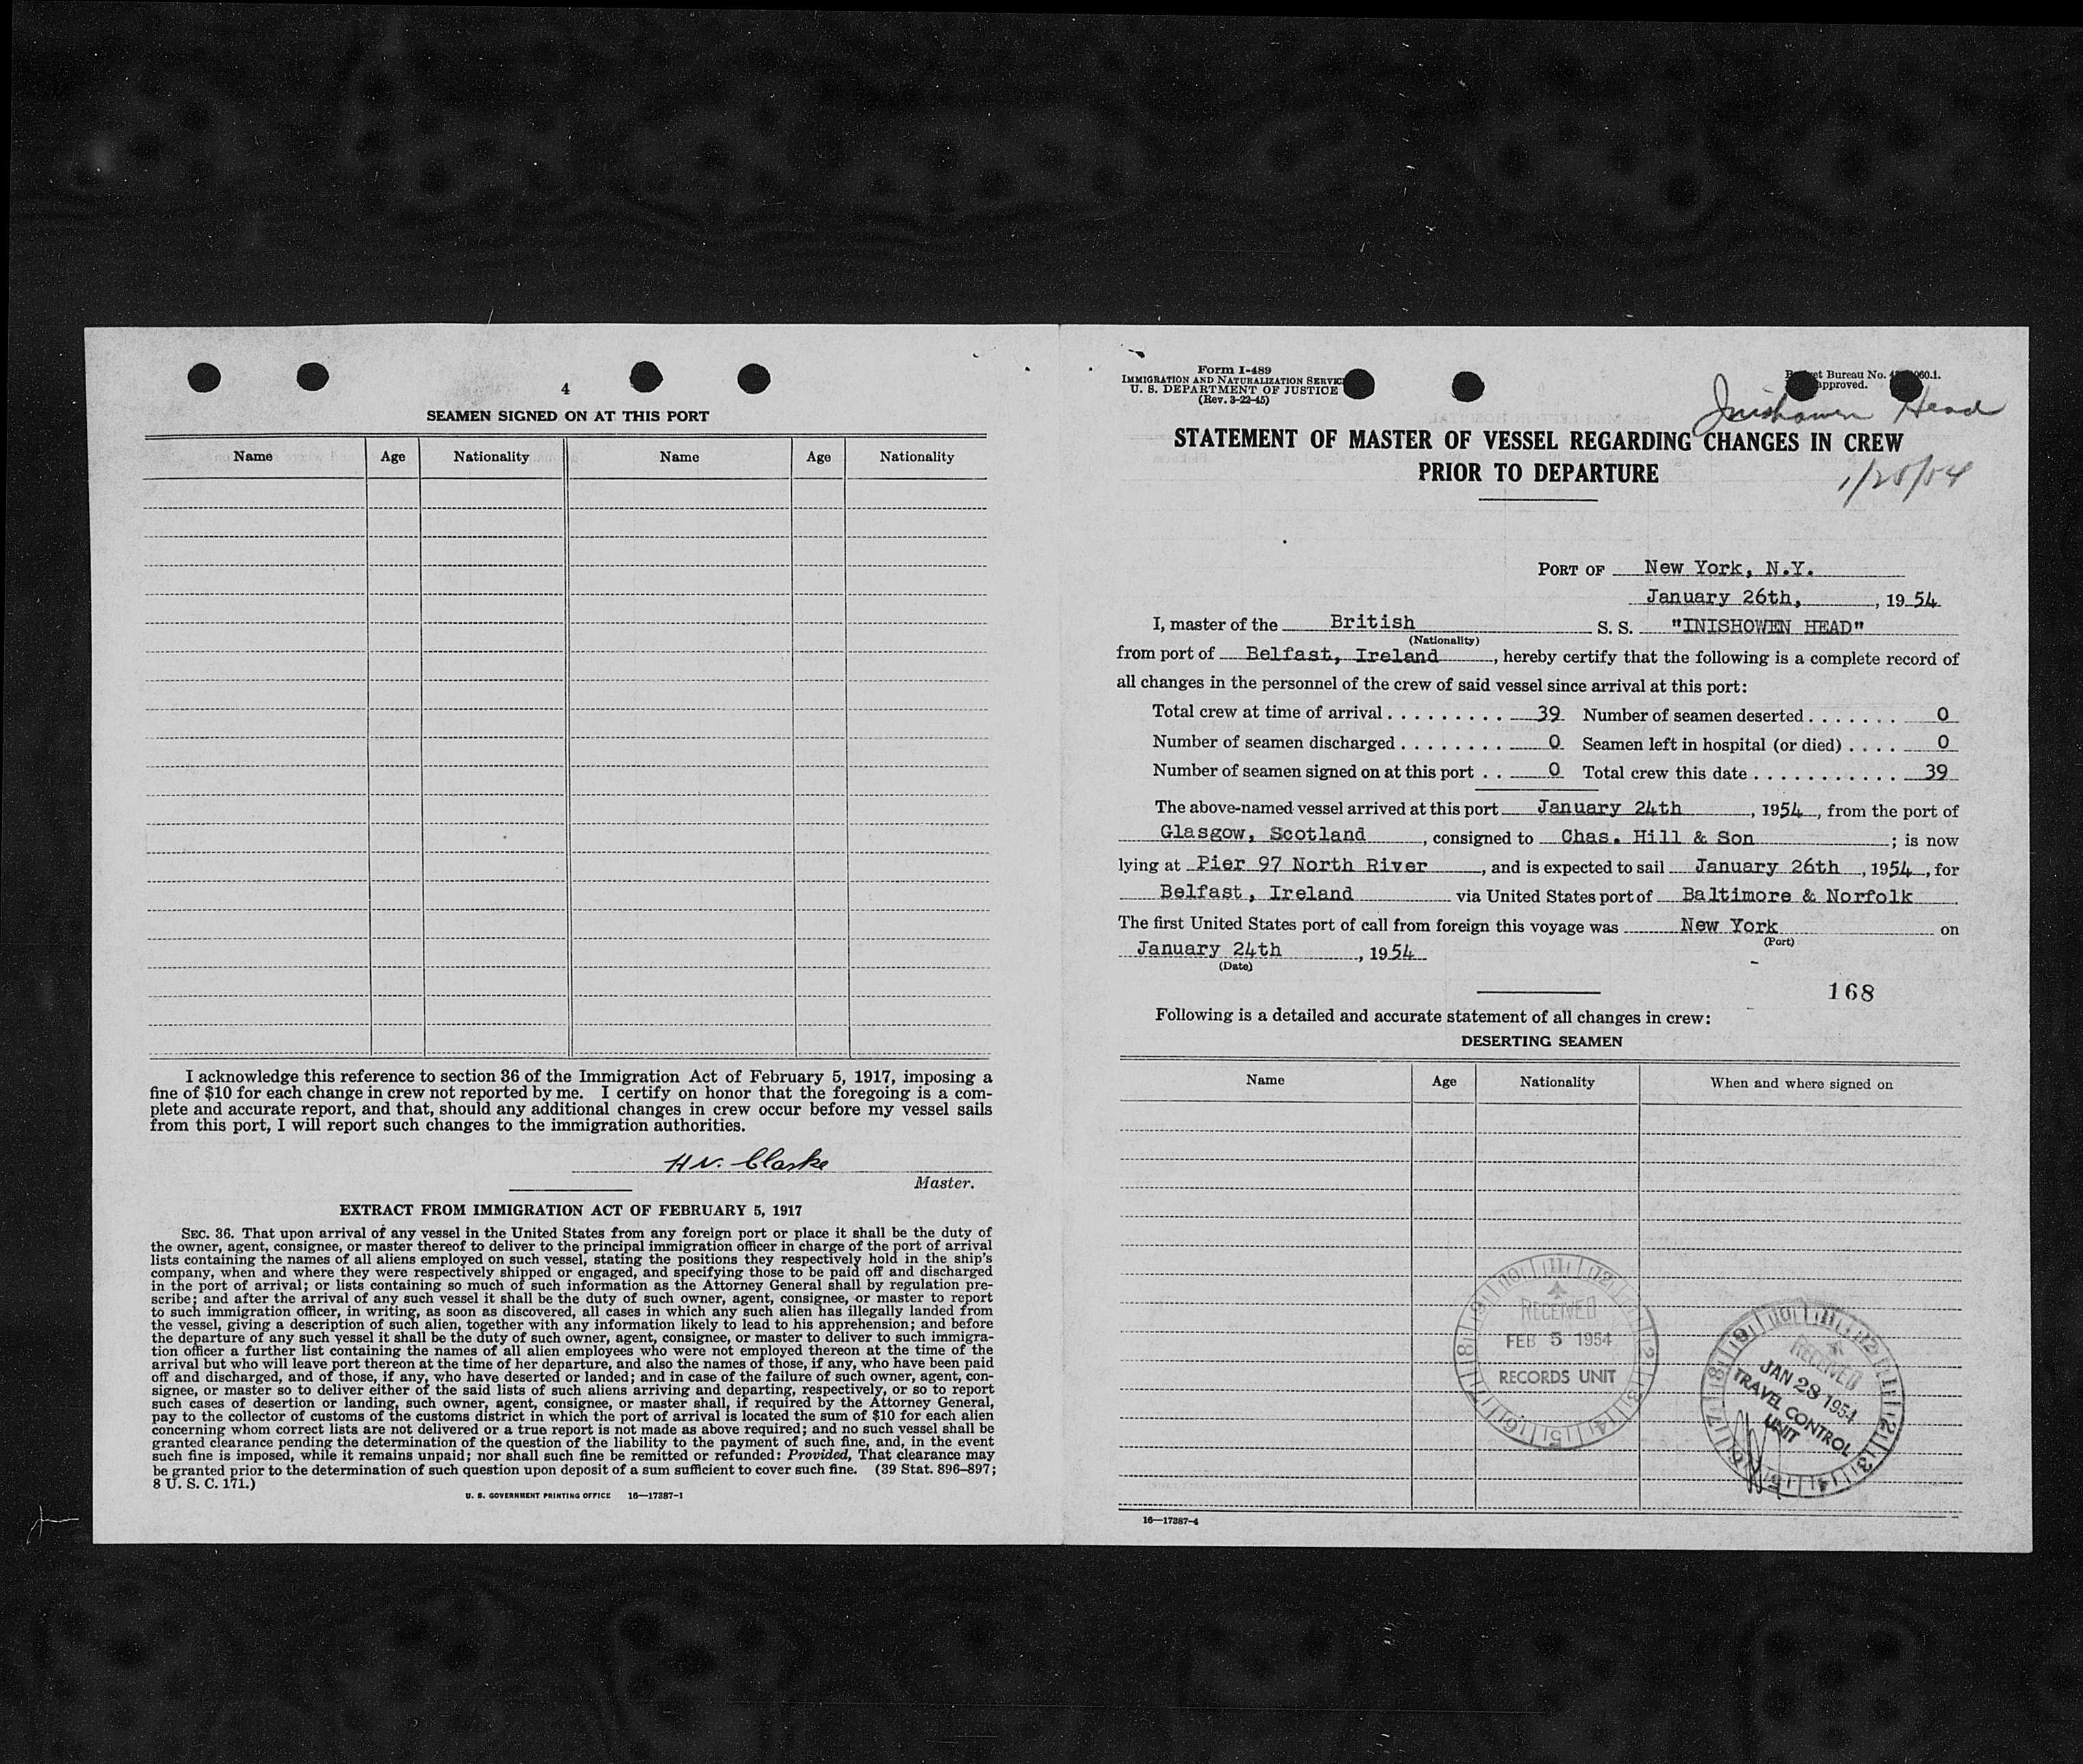 4
SEAMEN SIGNED ON AT THIS PORT
Name Age Nationality Name Age Nationality
I acknowledge this reference to section 36 of the Immigration Act of February 5, 1917, imposing a
fine of $10 for each change in crew not reported by me. I certify on honor that the foregoing is a com-
plete and accurate report, and that, should any additional changes in crew occur before my vessel sails
from this port, I will report such changes to the immigration authorities.
H N. Clarke
Master.
EXTRACT FROM IMMIGRATION ACT OF FEBRUARY 5, 1917
SEC. 36. That upon arrival of any vessel in the United States from any foreign port or place it shall be the duty of
the owner, agent, consignee, or master thereof to deliver to the principal immigration officer in charge of the port of arrival
lists containing the names of all aliens employed on such vessel, stating the positions they respectively hold in the ship's
company, when and where they were respectively shipped or engaged, and specifying those to be paid off and discharged
in the port of arrival; or lists containing so much of such information as the Attorney General shall by regulation pre-
scribe; and after the arrival of any such vessel it shall be the duty of such owner, agent, consignee, or master to report
to such immigration officer, in writing, as soon as discovered, all cases in which any such alien has illegally landed from
the vessel, giving a description of such alien, together with any information likely to lead to his apprehension; and before
the departure of any such vessel it shall be the duty of such owner, agent, consignee, or master to deliver to such immigra-
tion officer a further list containing the names of all alien employees who were not employed thereon at the time of the
arrival but who will leave port thereon at the time of her departure, and also the names of those, if any, who have been paid
off and discharged, and of those, if any, who have deserted or landed; and in case of the failure of such owner, agent, con-
signee, or master so to deliver either of the said lists of such aliens arriving and departing, respectively, or so to report
such cases of desertion or landing, such owner, agent, consignee, or master shall, if required by the Attorney General,
pay to the collector of customs of the customs district in which the port of arrival is located the sum of $10 for each alien
concerning whom correct lists are not delivered or a true report is not made as above required; and no such vessel shall be
granted clearance pending the determination of the question of the liability to the payment of such fine, and, in the event
such fine is imposed, while it remains unpaid; nor shall such fine be remitted or refunded: Provided, That clearance may
be granted prior to the determination of such question upon deposit of a sum sufficient to cover such fine. (39 Stat. 896-897;
8 U. S. C. 171.)
U. S. GOVERNMENT PRINTING OFFICE 16—17387-1
Form I-489
IMMIGRATION AND NATURALIZATION SERVICE
U. S. DEPARTMENT OF JUSTICE
(Rev. 3-22-45)
Bureau No.
approved.
Inishowen Head
STATEMENT OF MASTER OF VESSEL REGARDING CHANGES IN CREW
PRIOR TO DEPARTURE
PORT OF New York, N.Y.
January 26th, , 19 54
I, master of the British S. S. "INISHOWEN HEAD"
(Nationality)
from port of Belfast, Ireland , hereby certify that the following is a complete record of
all changes in the personnel of the crew of said vessel since arrival at this port:
Total crew at time of arrival . . . . . . . . . 39 Number of seamen deserted . . . . . . . 0
Number of seamen discharged . . . . . . . . 0 Seamen left in hospital (or died) . . . . 0
Number of seamen signed on at this port . . 0 Total crew this date . . . . . . . . . . . 39
The above-named vessel arrived at this port January 24th , 1954 , from the port of
Glasgow, Scotland , consigned to Chas. Hill & Son ; is now
lying at Pier 97 North River , and is expected to sail January 26th , 1954 , for
Belfast, Ireland via United States port of Baltimore & Norfolk
The first United States port of call from foreign this voyage was New York on
(Port)
January 24th , 19 54
(Date)
168
Following is a detailed and accurate statement of all changes in crew:
DESERTING SEAMEN
Name Age Nationality When and where signed on
RECEIVED
FEB 5 1954
RECORDS UNIT
RECEIVED
JAN 28 1954
TRAVEL CONTROL
UNIT
16—17387-4